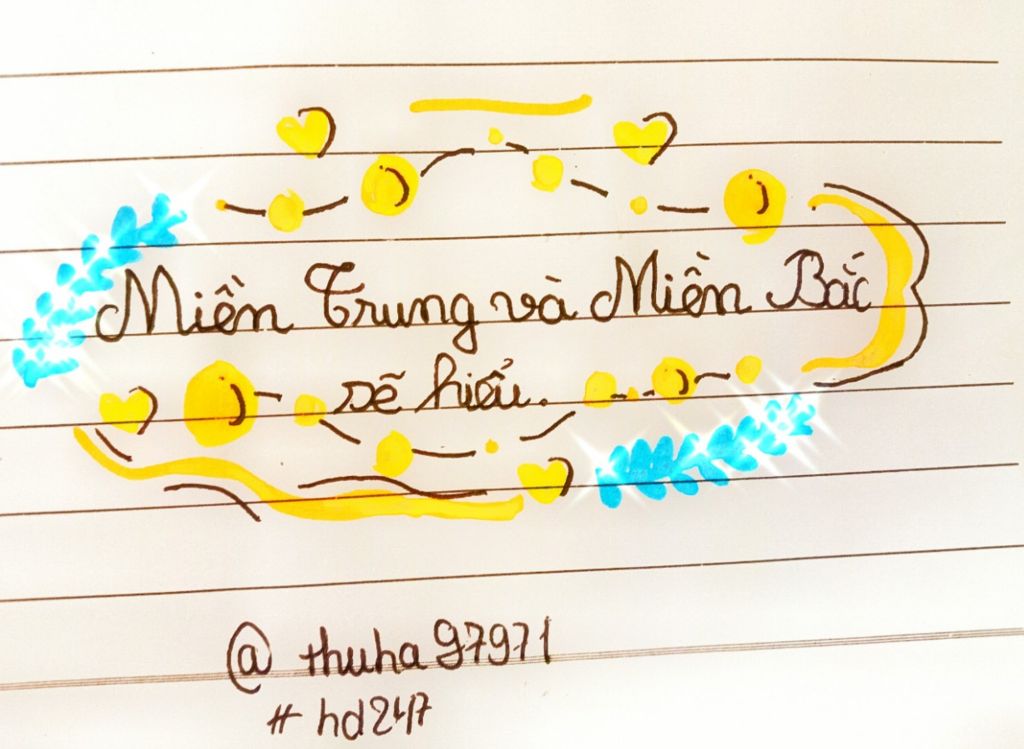 Miền Trung và Miền Bắc
sẽ hiểu.
@thuha97971
#hd247